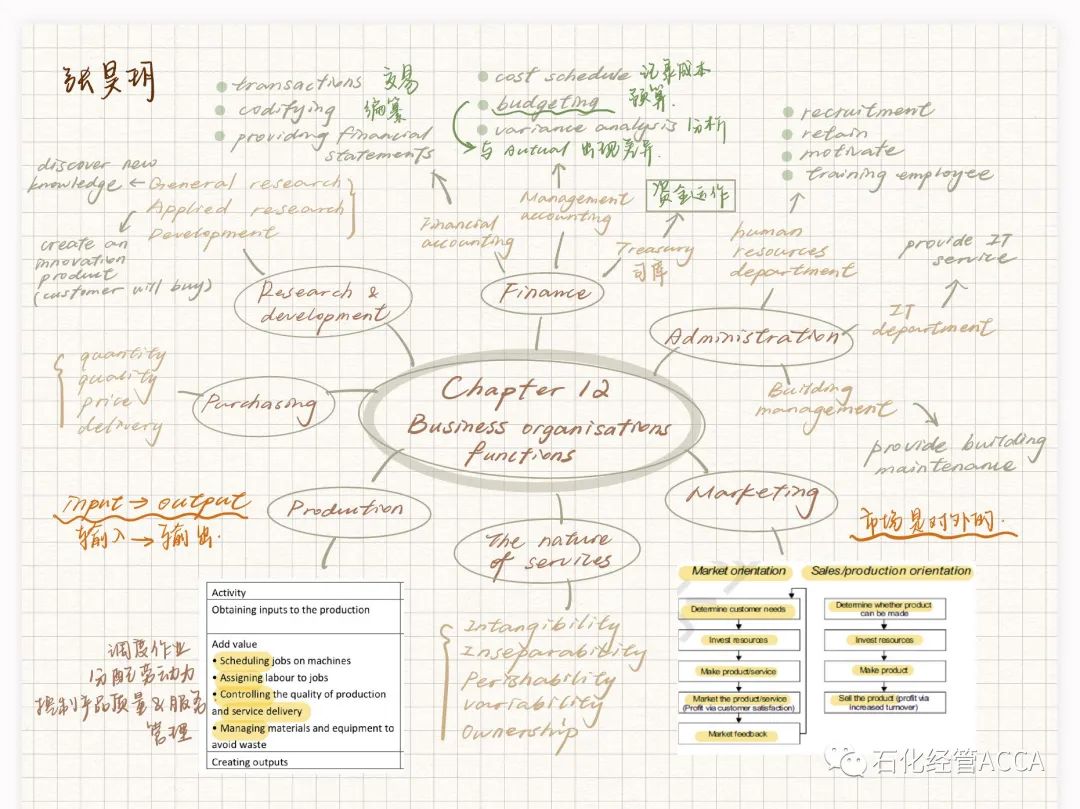 张昊玥
transactions 交易
codifying 编纂
providing financial
statements
cost schedule 记录成本
budgeting 预算
variance analysis 分析
与 Autual 出现差异
recruitment
retain
motivate
training employee
discover new
knowledge ← General research
Applied research
Development
create an
innovation
product
(customer will buy)
Financial
accounting
Management
accounting
资金运作
Treasury
司库
human
resources
department
provide IT
service
IT
department
Research &
development
Finance
Administration
Building
management
provide building
maintenance
quantity
quality
price
delivery
Purchasing
Chapter 12
Business organisations
functions
input → output
输入 → 输出
Production
The nature
of services
Marketing
市场是对外的
Activity
Obtaining inputs to the production
Add value
• Scheduling jobs on machines
• Assigning labour to jobs
• Controlling the quality of production
and service delivery
• Managing materials and equipment to
avoid waste
Creating outputs
调度作业
分配劳动力
控制产品质量&服务
管理
Intangibility
Inseparability
Perishability
Variability
Ownership
Market orientation
Determine customer needs
Invest resources
Make product/service
Market the product/service
(Profit via customer satisfaction)
Market feedback
Sales/production orientation
Determine whether product
can be made
Invest resources
Make product
Sell the product (profit via
increased turnover)
石化经管ACCA